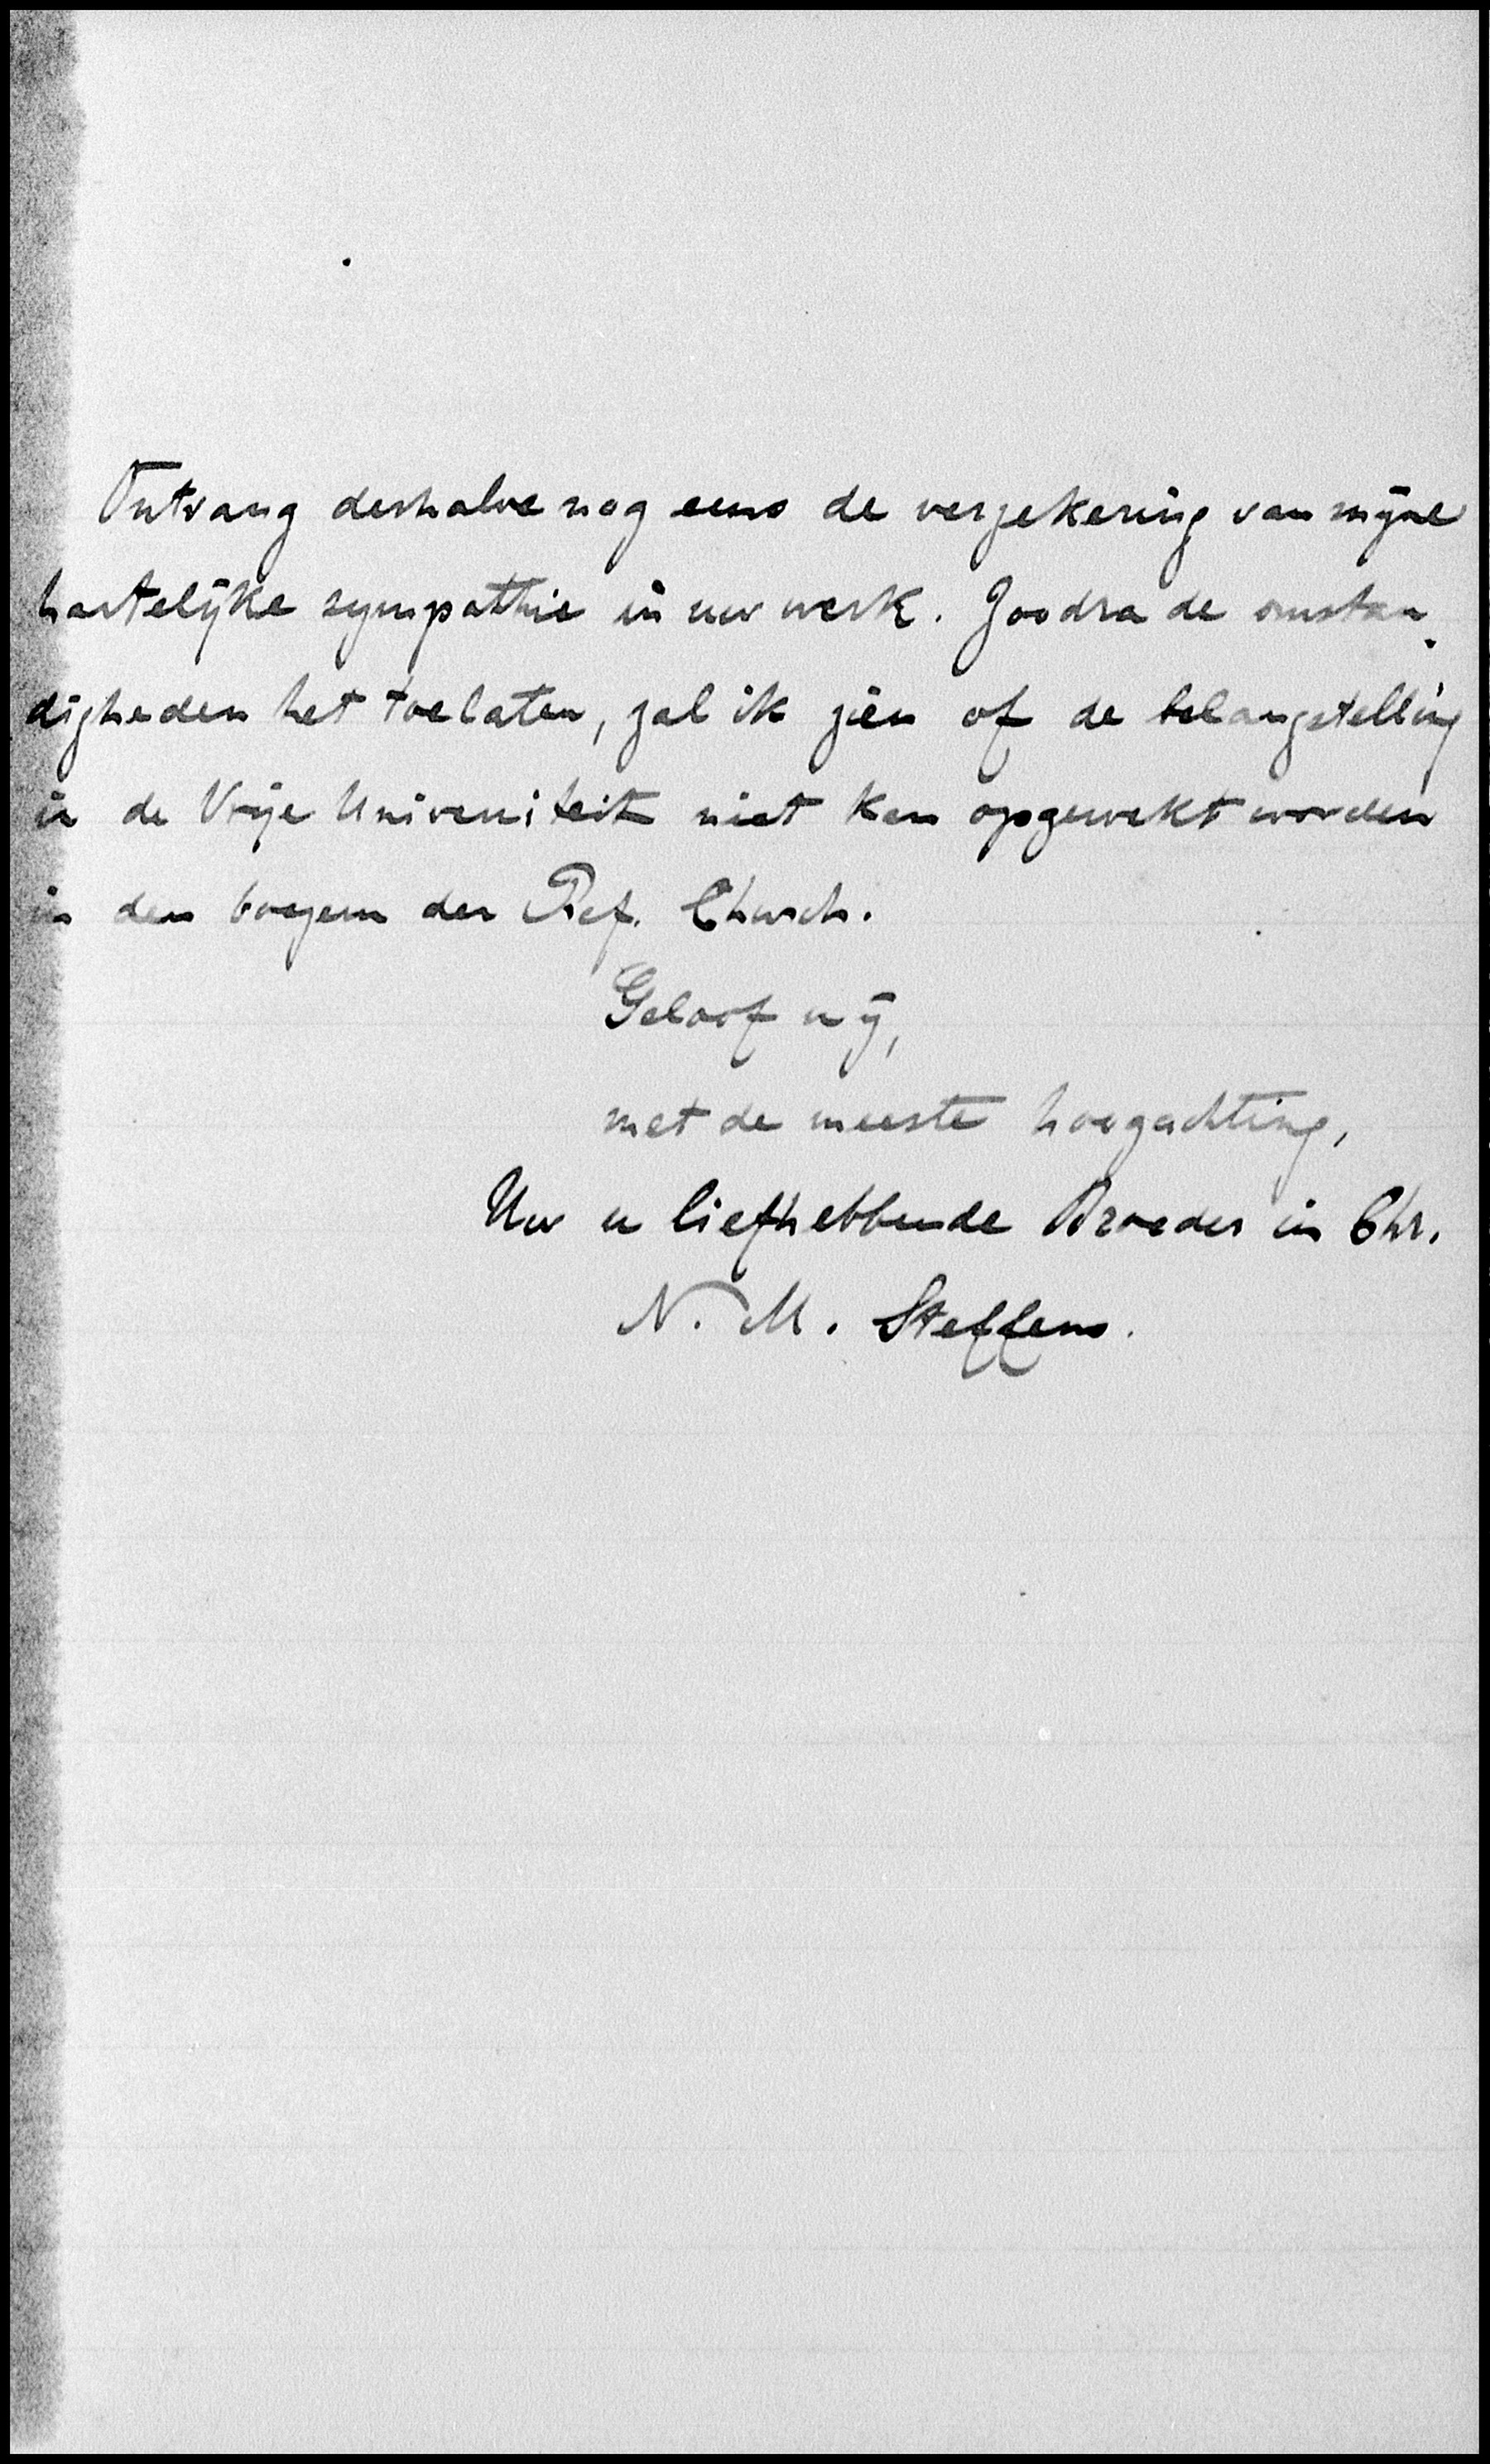 Ontvang deshalve nog eens de verzekering van mijne
hartelijke sympathie in uw werk. Zoodra de omstan-
digheden het toelaten, zal ik zien of de belangstelling
in de Vrije Universiteit niet kan opgewekt worden
in den boezem der Ref. Church.
Geloof mij,
met de meeste hoogachting,
Uw u liefhebbende Broeder in Chr.
N. M. Steffens.